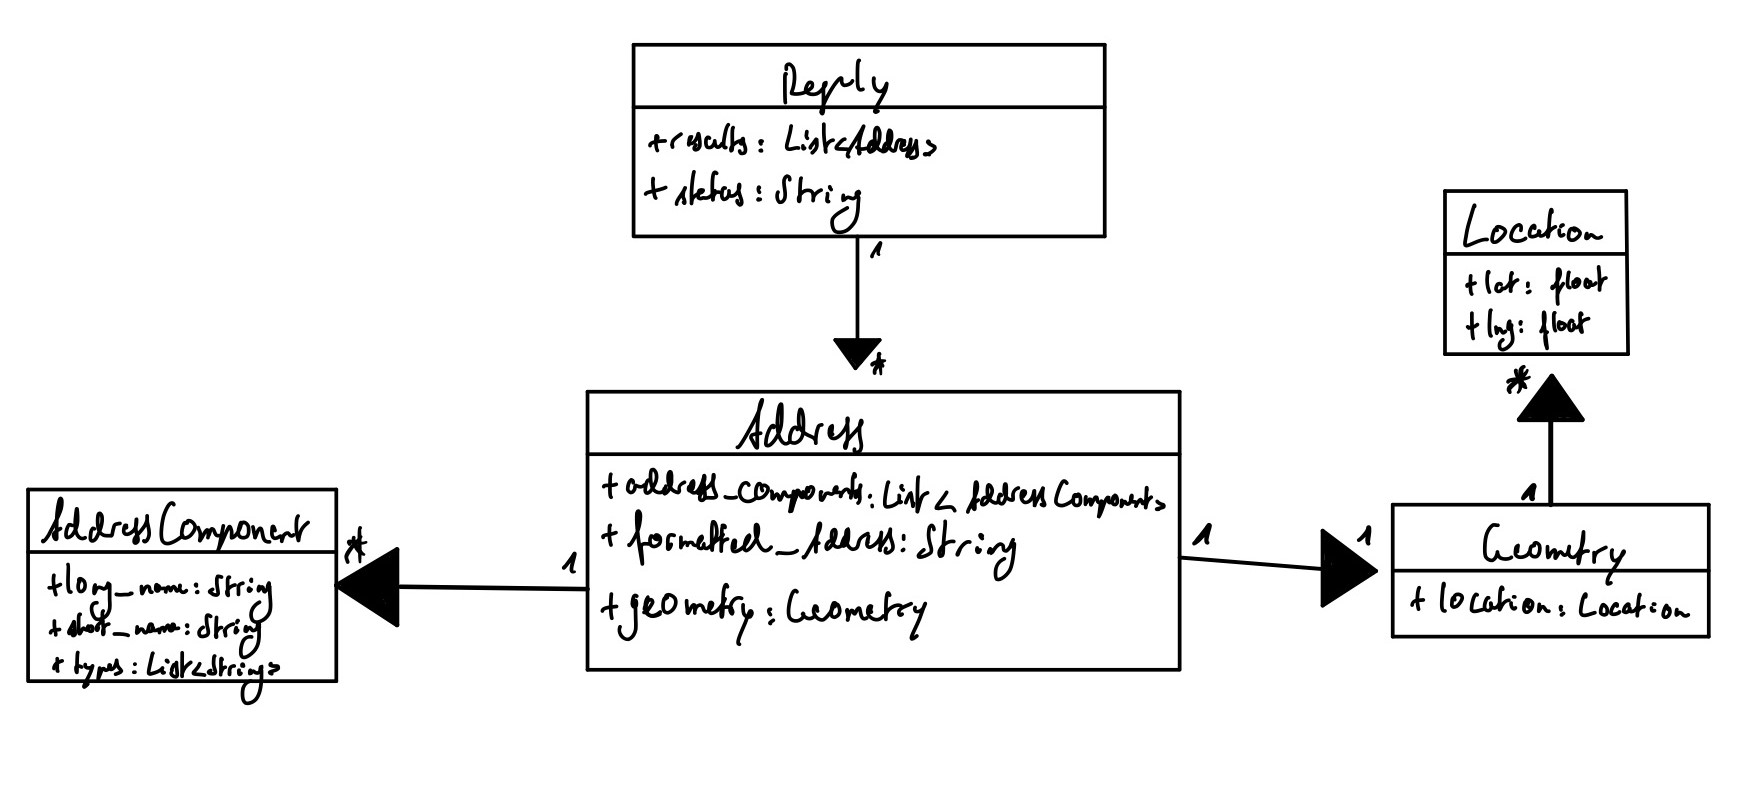 Reply
+results: List<Address>
+ status: String
1
*
Location
+ lat: float
+ lng: float
*
1
Address
+ address_components: List< AddressComponent>
+ formatted_Address: String
+ geometry: Geometry
AddressComponent
+long_name: String
+ short_name: String
+ types: List<String>
*
1
1
1
Geometry
+ location: Location